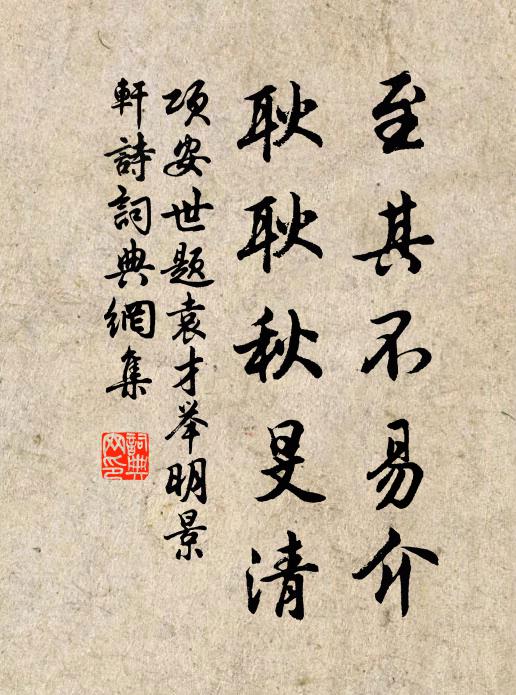 至其不易介
耿耿秋旻清
项安世题袁才举明景
軒詩詞典網集
詞典
网印